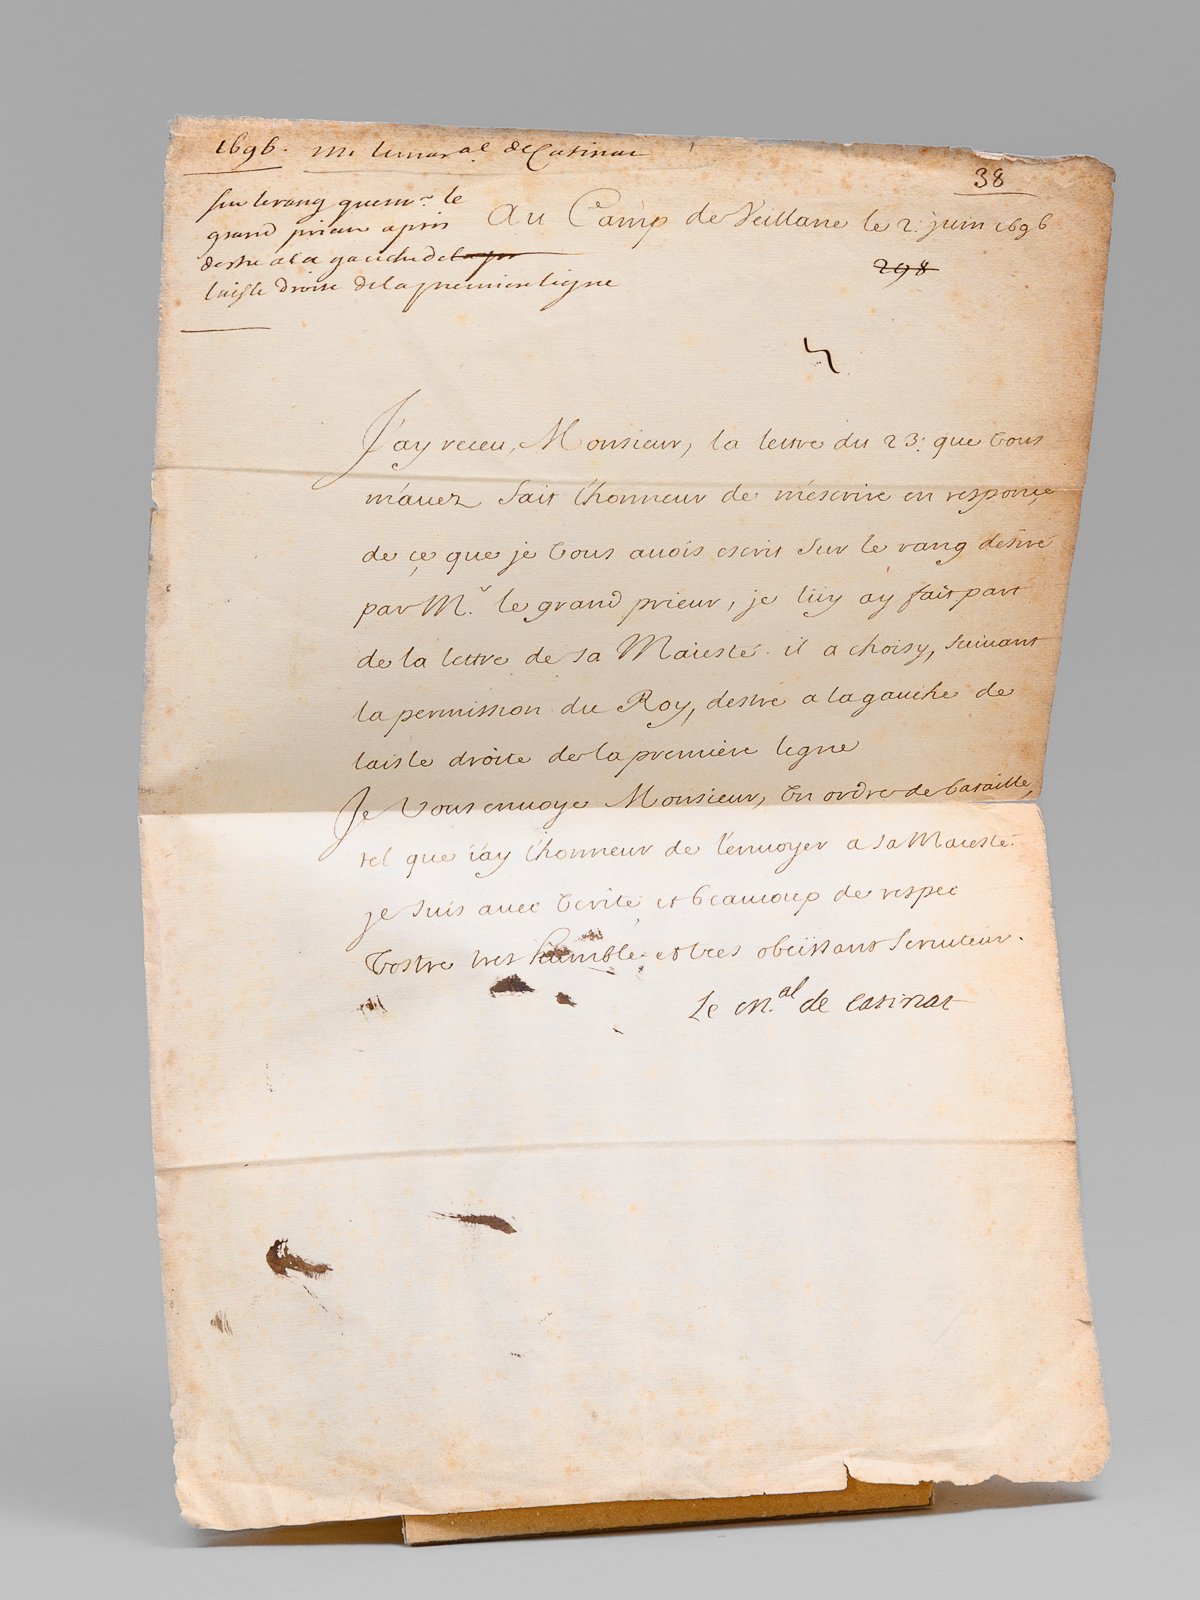 1696. M. le mar.al de Catinat
38
sur le rang que m.r le
grand prieur a pris
Au Camp de Veillane le 2. juin 1696
d'estre a la gauche de la pr
298
laisle droite de la premiere ligne
J'ay receu, Monsieur, la lettre du 23: que vous
m'auez fait l'honneur de m'escrire en responçe
de çe que je vous auois escrit sur le rang desiré
par M.r le grand prieur, je luy ay fait part
de la lettre de sa Maiesté. il a choisy, suiuant
la permission du Roy, destre a la gauche de
laisle droite de la premiere ligne
Je vous enuoye Monsieur, Un ordre de bataille,
tel que i'ay l'honneur de l'enuoyer a sa Maiesté.
je suis auec verité, et beaucoup de respec
Vostre tres humble et tres obeissant seruiteur.
Le m.al de Catinat